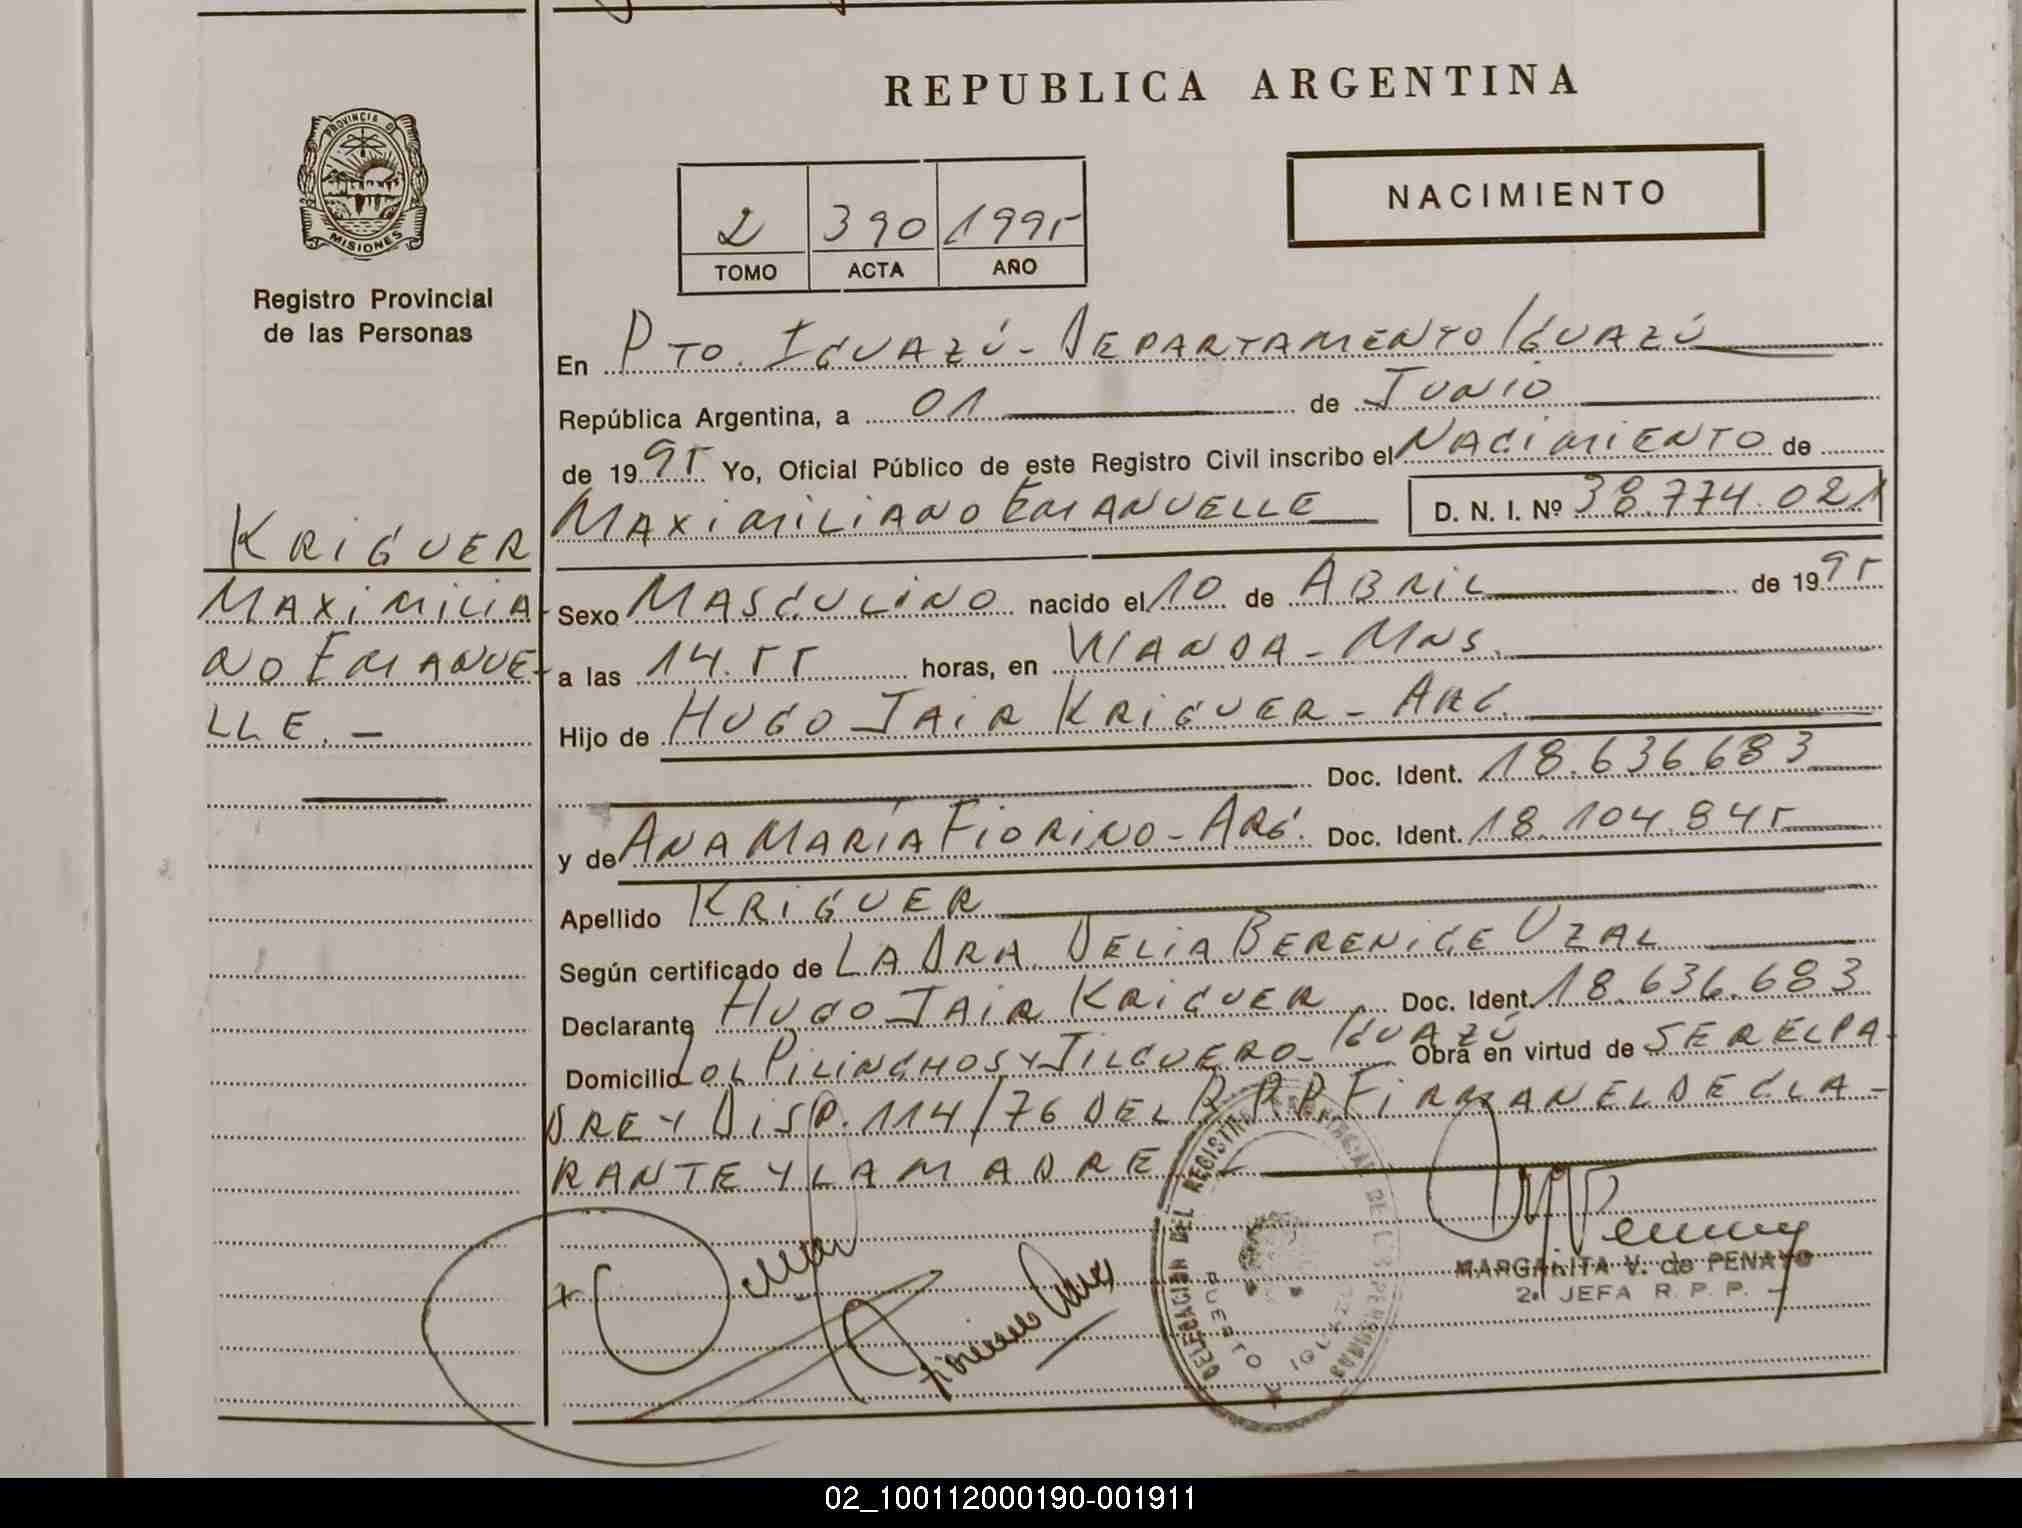 REPUBLICA ARGENTINA
PROVINCIA DE
MISIONES
Registro Provincial
de las Personas
NACIMIENTO
2 390 1995
TOMO ACTA AÑO
En PTO. IGUAZÚ - DEPARTAMENTO IGUAZÚ
República Argentina, a 01 de JUNIO
de 1995 Yo, Oficial Público de este Registro Civil inscribo el NACIMIENTO de
MAXIMILIANO EMANUELLE D. N. I. Nº 38.774.021
KRIGUER
MAXIMILIA-
NO EMANUE-
LLE. -
Sexo MASCULINO nacido el 10 de ABRIL de 1995
a las 14.55 horas, en WANDA - MNS.
Hijo de HUGO JAIR KRIGUER - ARG.
Doc. Ident. 18.636.683
y de ANA MARÍA FIORINO - ARG. Doc. Ident. 18.104.845
Apellido KRIGUER
Según certificado de LA DRA. DELIA BERENICE UZAL
Declarante HUGO JAIR KRIGUER Doc. Ident. 18.636.683
Domicilio LOS PILINCHOS Y JILGUERO - IGUAZÚ Obra en virtud de SER EL PA-
DRE Y DISP. 114/76 DEL R.P.P. FIRMAN EL DECLA-
RANTE Y LA MADRE
DELEGACION DEL REGISTRO PROVINCIAL DE LAS PERSONAS
PUERTO IGUAZU
MARGARITA V. de PENAYO
2ª JEFA R. P. P.
02_100112000190-001911